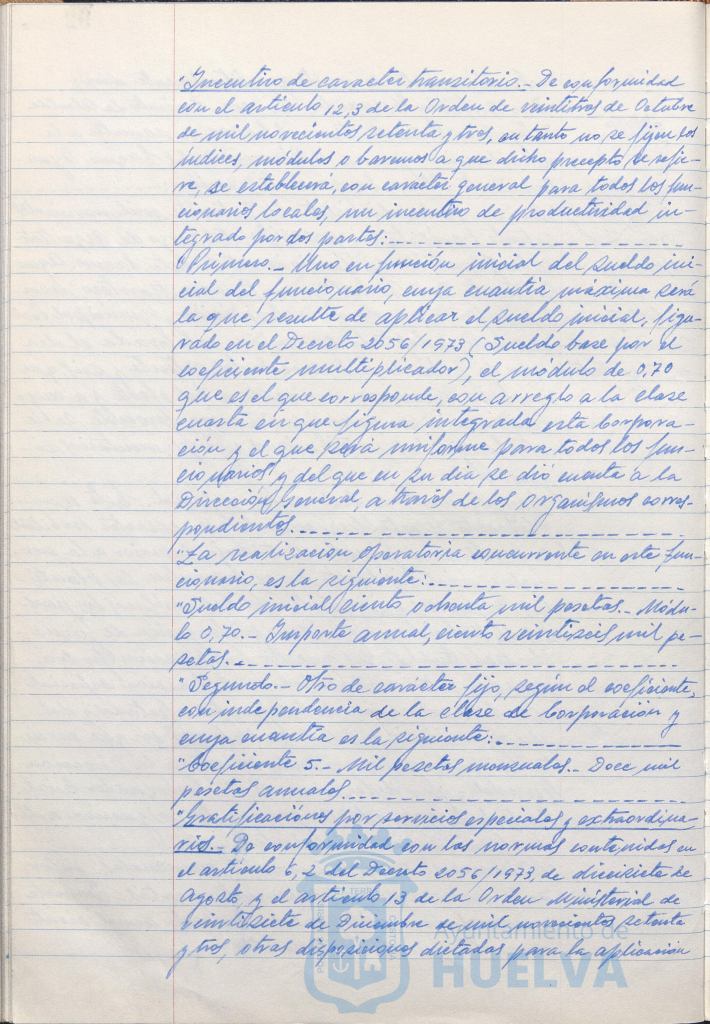 "Incentivo de caracter transitorio.- De conformidad
con el artículo 12,3 de la Orden de veintitres de Octubre
de mil novecientos setenta y tres, en tanto no se fijen los
índices, módulos o baremos a que dicho precepto se refie-
re, se establecerá, con carácter general para todos los fun-
cionarios locales, un incentivo de productividad in-
tegrado por dos partes:
"Primero.- Uno en función inicial del sueldo ini-
cial del funcionario, cuya cuantía máxima será
la que resulte de aplicar el sueldo inicial, figu-
rado en el Decreto 2056/1973 (Sueldo base por el
coeficiente multiplicador), el módulo de 0,70
que es el que corresponde, con arreglo a la clase
cuarta en que figura integrada esta Corpora-
ción y el que será uniforme para todos los fun-
cionarios y del que en su dia se dió cuenta a la
Dirección General, a través de los Organismos corres-
pondientes.
"La realización operatoria concurrente en este fun-
cionario, es la siguiente:
"Sueldo inicial ciento ochenta mil pesetas.- Módu-
lo 0,70.- Importe anual, ciento veintiseis mil pe-
setas.
"Segundo.- Otro de carácter fijo, según el coeficiente,
con independencia de la clase de Corporación y
cuya cuantía es la siguiente:
"Coeficiente 5.- Mil pesetas mensuales.- Doce mil
pesetas anuales.
"Gratificaciones por servicios especiales y extraordina-
rios.- De conformidad con las normas contenidas en
el artículo 6,2 del Decreto 2056/1973, de diecisiete de
Agosto, y el artículo 13 de la Orden Ministerial de
veintisiete de Diciembre de mil novecientos setenta
y tres, otras disposiciones dictadas para la aplicación
Ayuntamiento de
HUELVA